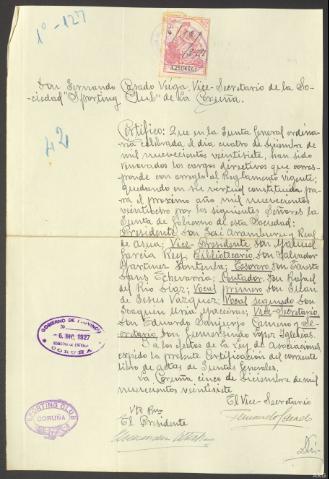 1º-127
Don Fernando Casado Veiga, Vice-Secretario de la So-
ciedad "Sporting Club" de La Coruña.
42
Certifico: Que en la Junta General ordina-
ria celebrada el día cuatro de diciembre de
mil novecientos veintisiete, han sido
renovados los cargos directivos que corres-
ponde con arreglo al Reglamento vigente;
quedando en su virtud constituida para
el próximo año mil novecientos
veintiocho por los siguientes Señores la
Junta de Gobierno de esta Sociedad:
Presidente Don José Aramburu y Real
de Asua; Vice-Presidente Don Manuel
García Rey; Bibliotecario Don Salvador
Martínez Fontenla; Tesorero Don Fausto
Echeverría; Contador Don Rafael
del Río Díaz; Vocal primero Don Juan
de Jesús Vázquez; Vocal segundo Don
Joaquín Macciñas; Vice-Secretario
Don Eduardo Sanjurjo y Se-
cretario Don Iglesias.
A los fectos de la Ley de Asociaciones
expido la presente Certificación del corriente
libro de actas de Juntas Generales.
La Coruña cinco de Diciembre de mil
novecientos veintisiete
GOBIERNO DE PROVINCIA
6 DIC. 1927
CORUÑA
El Vice-Secretario
Vto Bno
El Presidente
SPORTING CLUB
CORUÑA